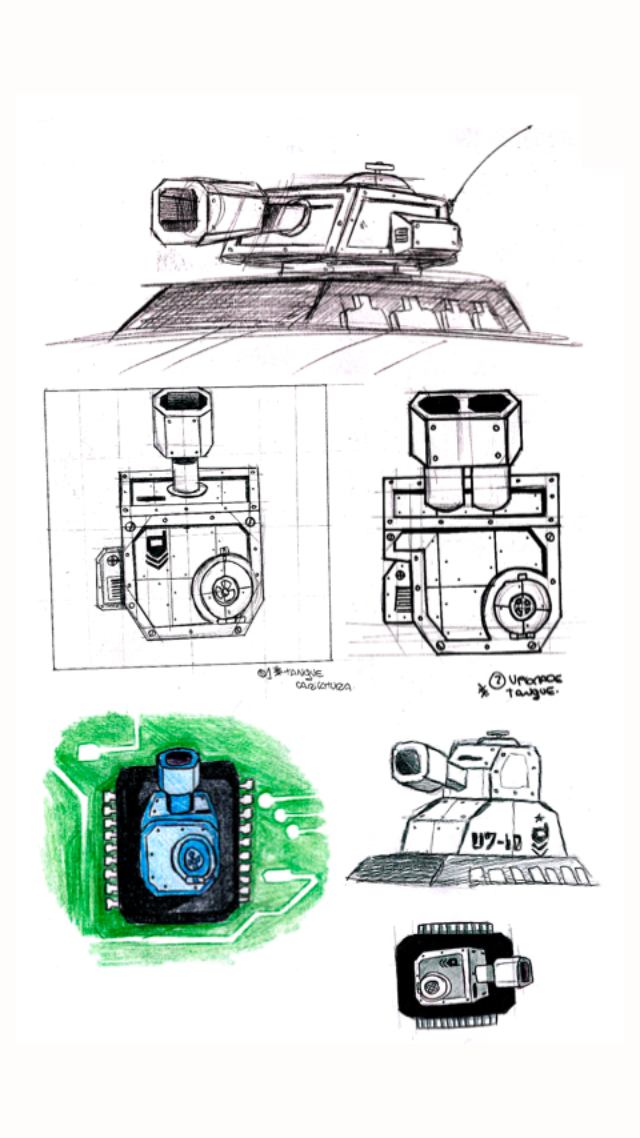 1 * TANQUE
CARICATURA.
2 UPGRADE
* TANQUE.
U7-10